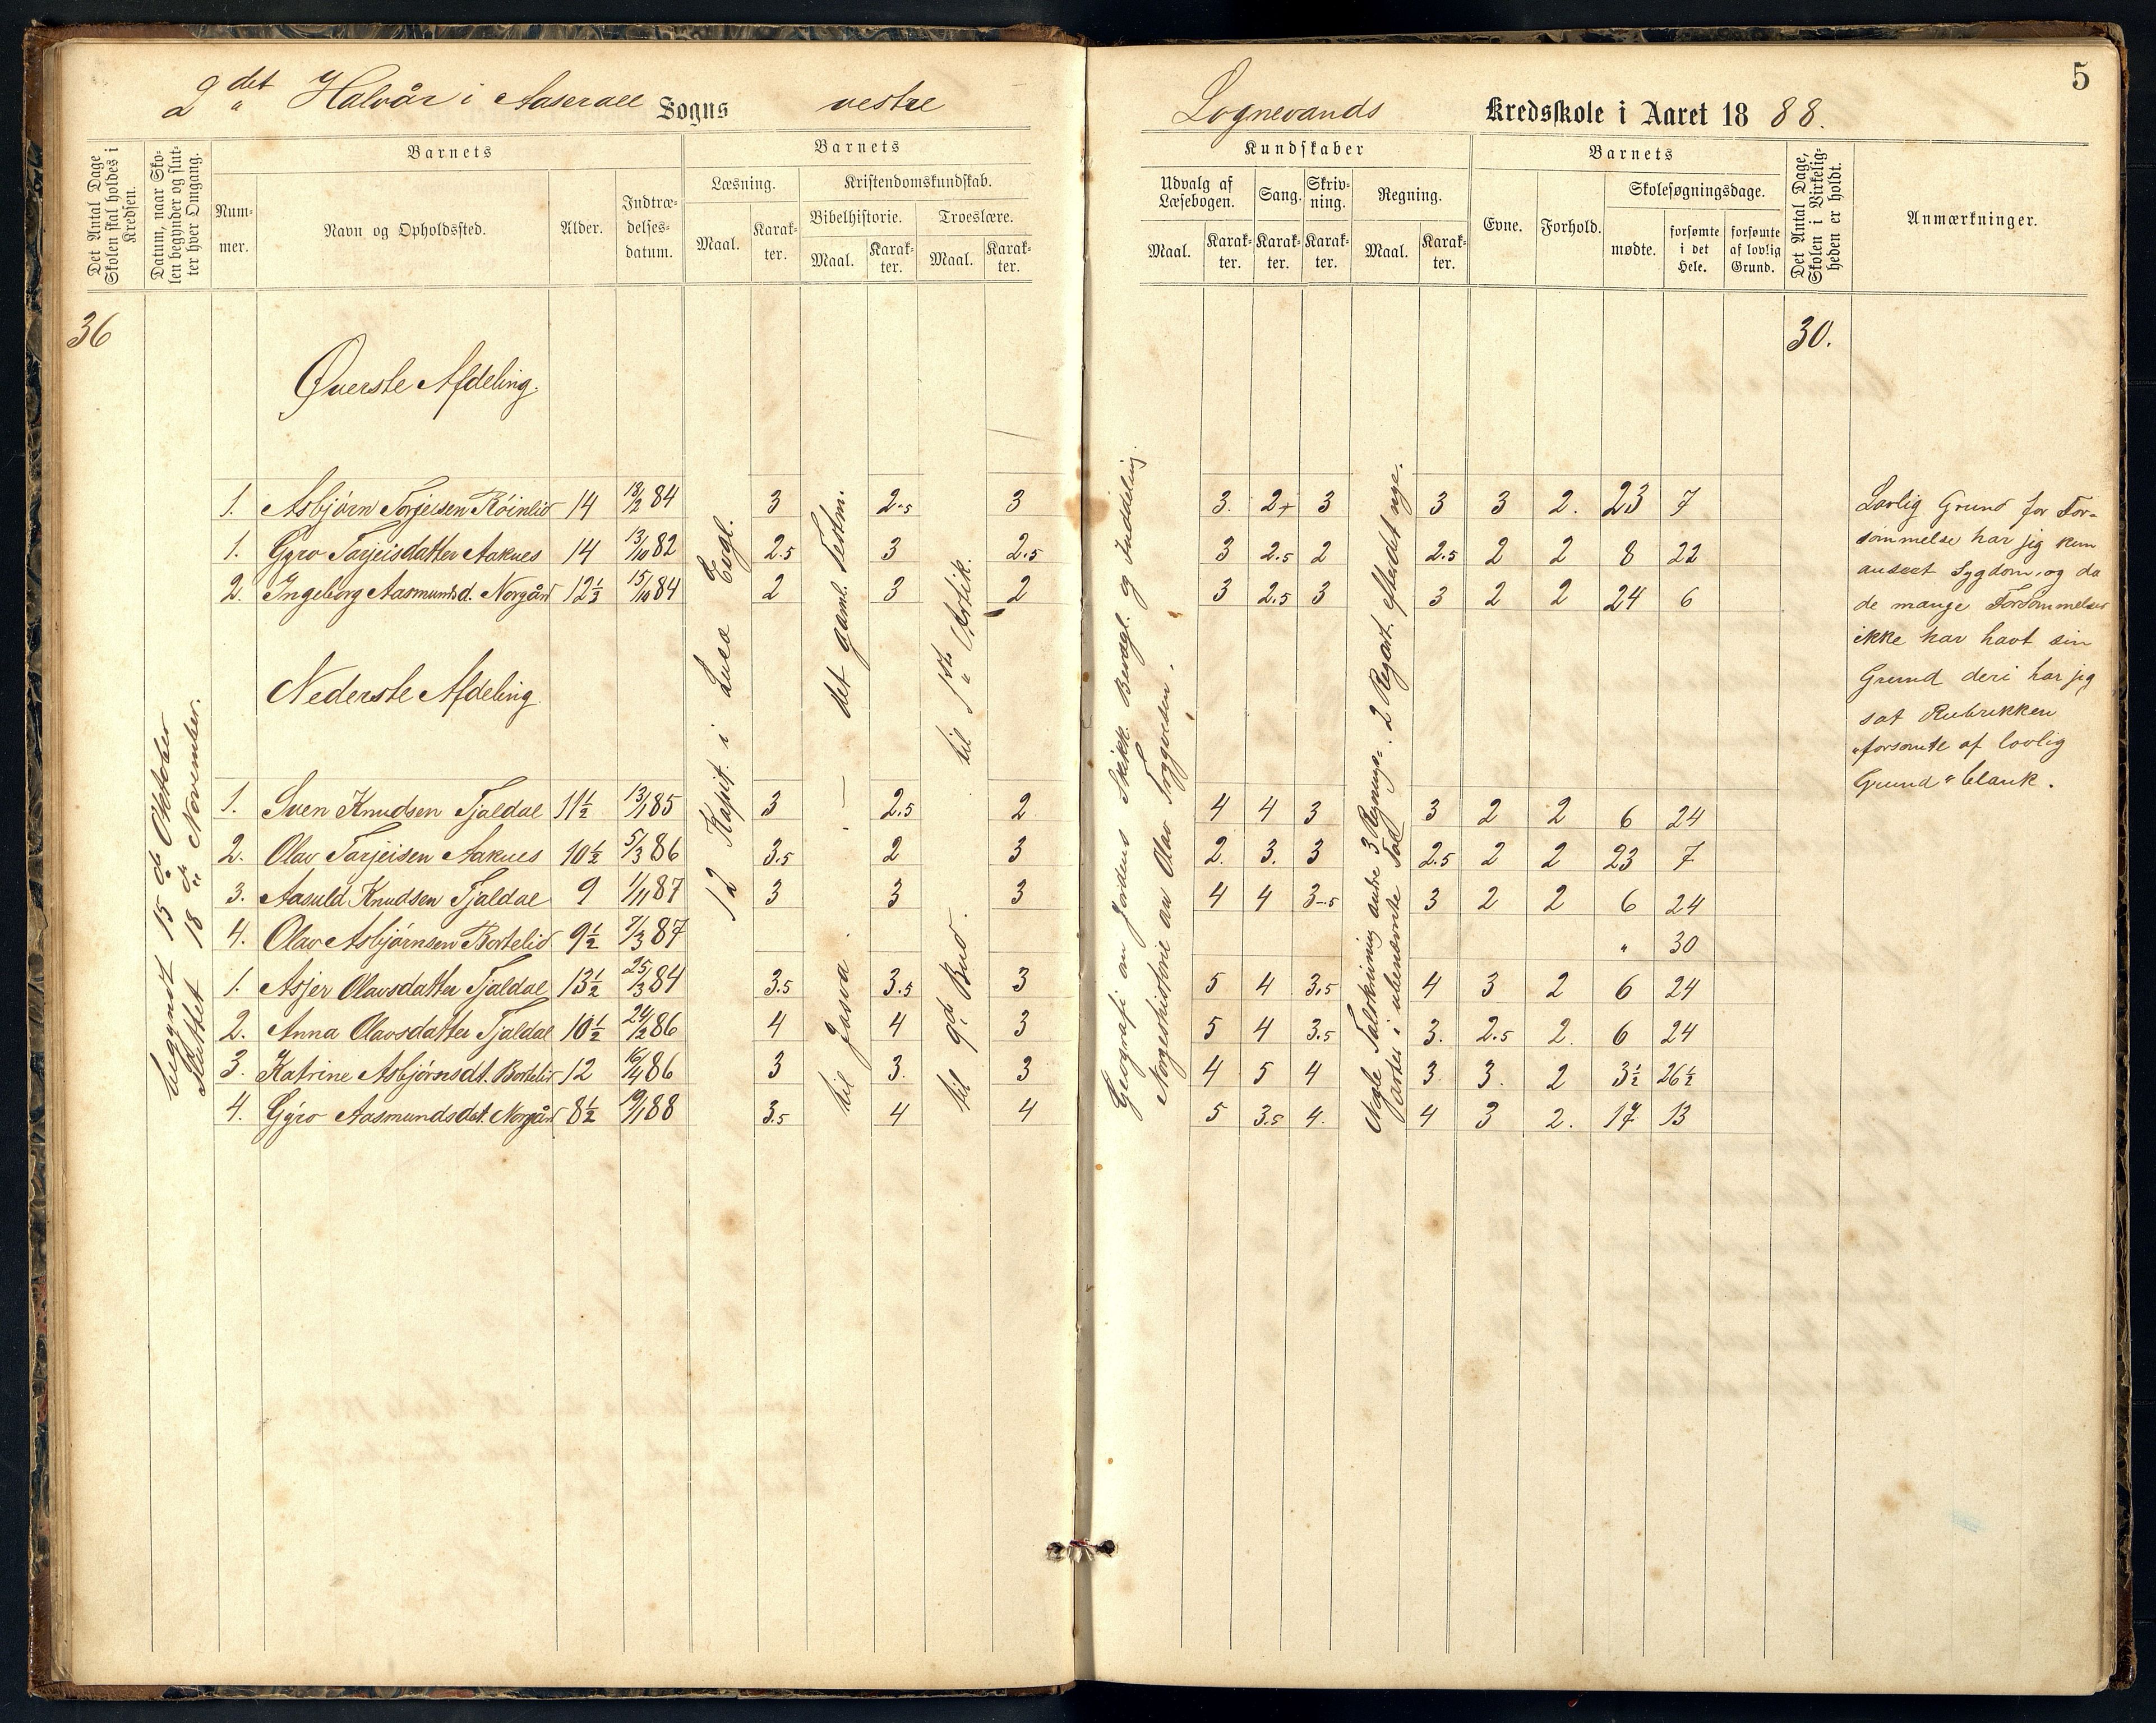 5
2det Halvår i Aaserall Sogns vestre Lognevands Kredsskole i Aaret 1888.
Det Antal Dage Skolen skal holdes i Kredsen.
Datum, naar Skolen begynder og slutter hver Omgang.
Barnets
Nummer.
Navn og Opholdssted.
Alder.
Indtrædelsesdatum.
Barnets
Læsning.
Maal.
Karakter.
Kristendomskundskab.
Bibelhistorie.
Maal.
Karakter.
Troeslære.
Maal.
Karakter.
Kundskaber
Udvalg af Læsebogen.
Maal.
Karakter.
Sang.
Karakter.
Skrivning.
Karakter.
Regning.
Maal.
Karakter.
Barnets
Evne.
Forhold.
Skolesøgningsdage.
mødte.
forsømte i det Hele.
forsømte af lovlig Grund.
Det Antal Dage, Skolen i Virkeligheden er holdt.
Anmærkninger.
36
30.
begyndt 15 de Oktober
Sluttet 18 de November.
12 Kapit. i Lucæ Evgl.
det gaml. Testm.
til Josva
til 1ste Artik.
til 9de Bud.
Geografi om Jordens Skikk. Bevægl. og Inddeling.
Norgeshistorie av Olav Trygveson.
Nogle Talskrivning andre 3 Regnings= 2 Regart. efter det nye.
arter i ubenævnte Tal
Øverste Afdeling.
1. Asbjørn Torjeisen Röinlid 14 18/2 84 3 2.5 3 3. 2+ 3 3 3 2. 23 7
1. Gyro Tarjeisdatter Aaknes 14 13/10 82 2.5 3 2.5 3 2.5 2 2.5 2 2 8 22
2. Ingeborg Aasmundsd. Norgård 12 1/3 15/10 84 2 3 2 3 2.5 3 3 2 2 24 6
Nederste Afdeling.
1. Sven Knudsen Tjaldal 11 1/2 13/1 85 3 2.5 2 4 4 3 3 2 2 6 24
2. Olav Tarjeisen Aaknes 10 1/2 5/3 86 3.5 2 3 2. 3. 3 2.5 2 2 23 7
3. Aasuld Knudsen Tjaldal 9 1/11 87 3 3 3 4 4 3-5 3 2 2 6 24
4. Olav Asbjørnsen Bortelid 9 1/2 7/3 87 " 30
1. Asjer Olavsdatter Tjaldal 13 1/2 25/3 84 3.5 3.5 3 5 4 3.5 4 3 2 6 24
2. Anna Olavsdatter Tjaldal 10 1/2 24/2 86 4 4 3 5 4 3.5 3. 2.5 2. 6 24
3. Katrine Asbjørnsdt. Bortelid 12 16/4 86 3 3. 3 4 5 4 3 3. 2 3 1/2 26 1/2
4. Gýro Aasmundsdat. Norgård 8 1/2 19/1 88 3.5 4 4 5 3.5 4. 4 3 2. 17 13
Lovlig Grund for For-
sømmelse har jeg kun
anseet Sygdom, og da
de mange Forsømmelser
ikke har havt sin
Grund deri har jeg
sat Rubrikken
"forsømte af lovlig
Grund" blank.